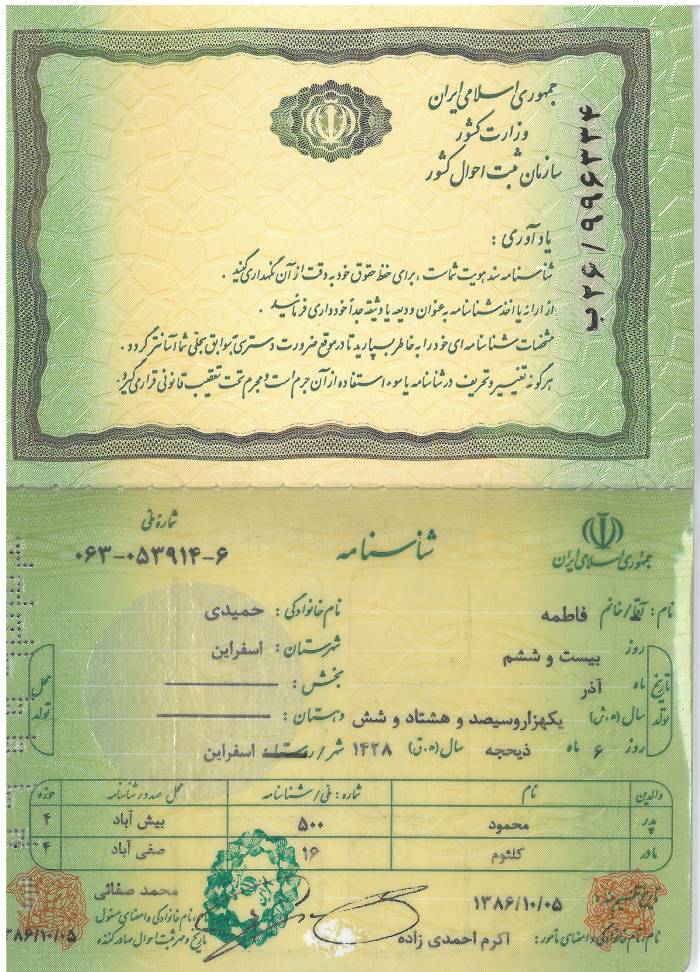 جمهوری اسلامی ایران
وزارت کشور
سازمان ثبت احوال کشور
ب۲۶/۹۹۶۳۳۴
یادآوری :
شناسنامه سند هویت شماست ، برای حفظ حقوق خود به دقت از آن نگهداری کنید .
از ارائه یا اخذ شناسنامه به عنوان ودیعه یا وثیقه جداً خودداری فرمائید .
مشخصات شناسنامه ای خود را به خاطر بسپارید تا در موقع ضرورت دسترسی به سوابق سجلی شما آسانتر گردد .
هرگونه تغییر و تحریف در شناسنامه یا سوء استفاده از آن جرم است و مجرم تحت تعقیب قانونی قرار می گیرد .
جمهوری اسلامی ایران
شناسنامه
شماره ملی
۰۶۳-۰۵۳۹۱۴-۶
نام : آقا/خانم فاطمه نام خانوادگی : حمیدی
تاریخ تولد
روز بیست و ششم
ماه آذر
سال (ه.ش) یکهزاروسیصد و هشتاد و شش
روز ۶ ماه ذیحجه سال (ه.ق) ۱۴۲۸
محل تولد
شهرستان : اسفراین
بخش :
دهستان :
شهر/روستا: اسفراین
والدین نام شماره : ملی/شناسنامه محل صدور شناسنامه حوزه
پدر محمود ۵۰۰ بیش آباد ۴
مادر کلثوم ۱۶ صفی آباد ۴
۱۳۸۶/۱۰/۰۵
نام، نام خانوادگی و امضای مأمور: اکرم احمدی زاده
محمد صفائی
نام، نام خانوادگی و امضای مسئول
تاریخ و مهر ثبت احوال صادر کننده
۱۳۸۶/۱۰/۰۵